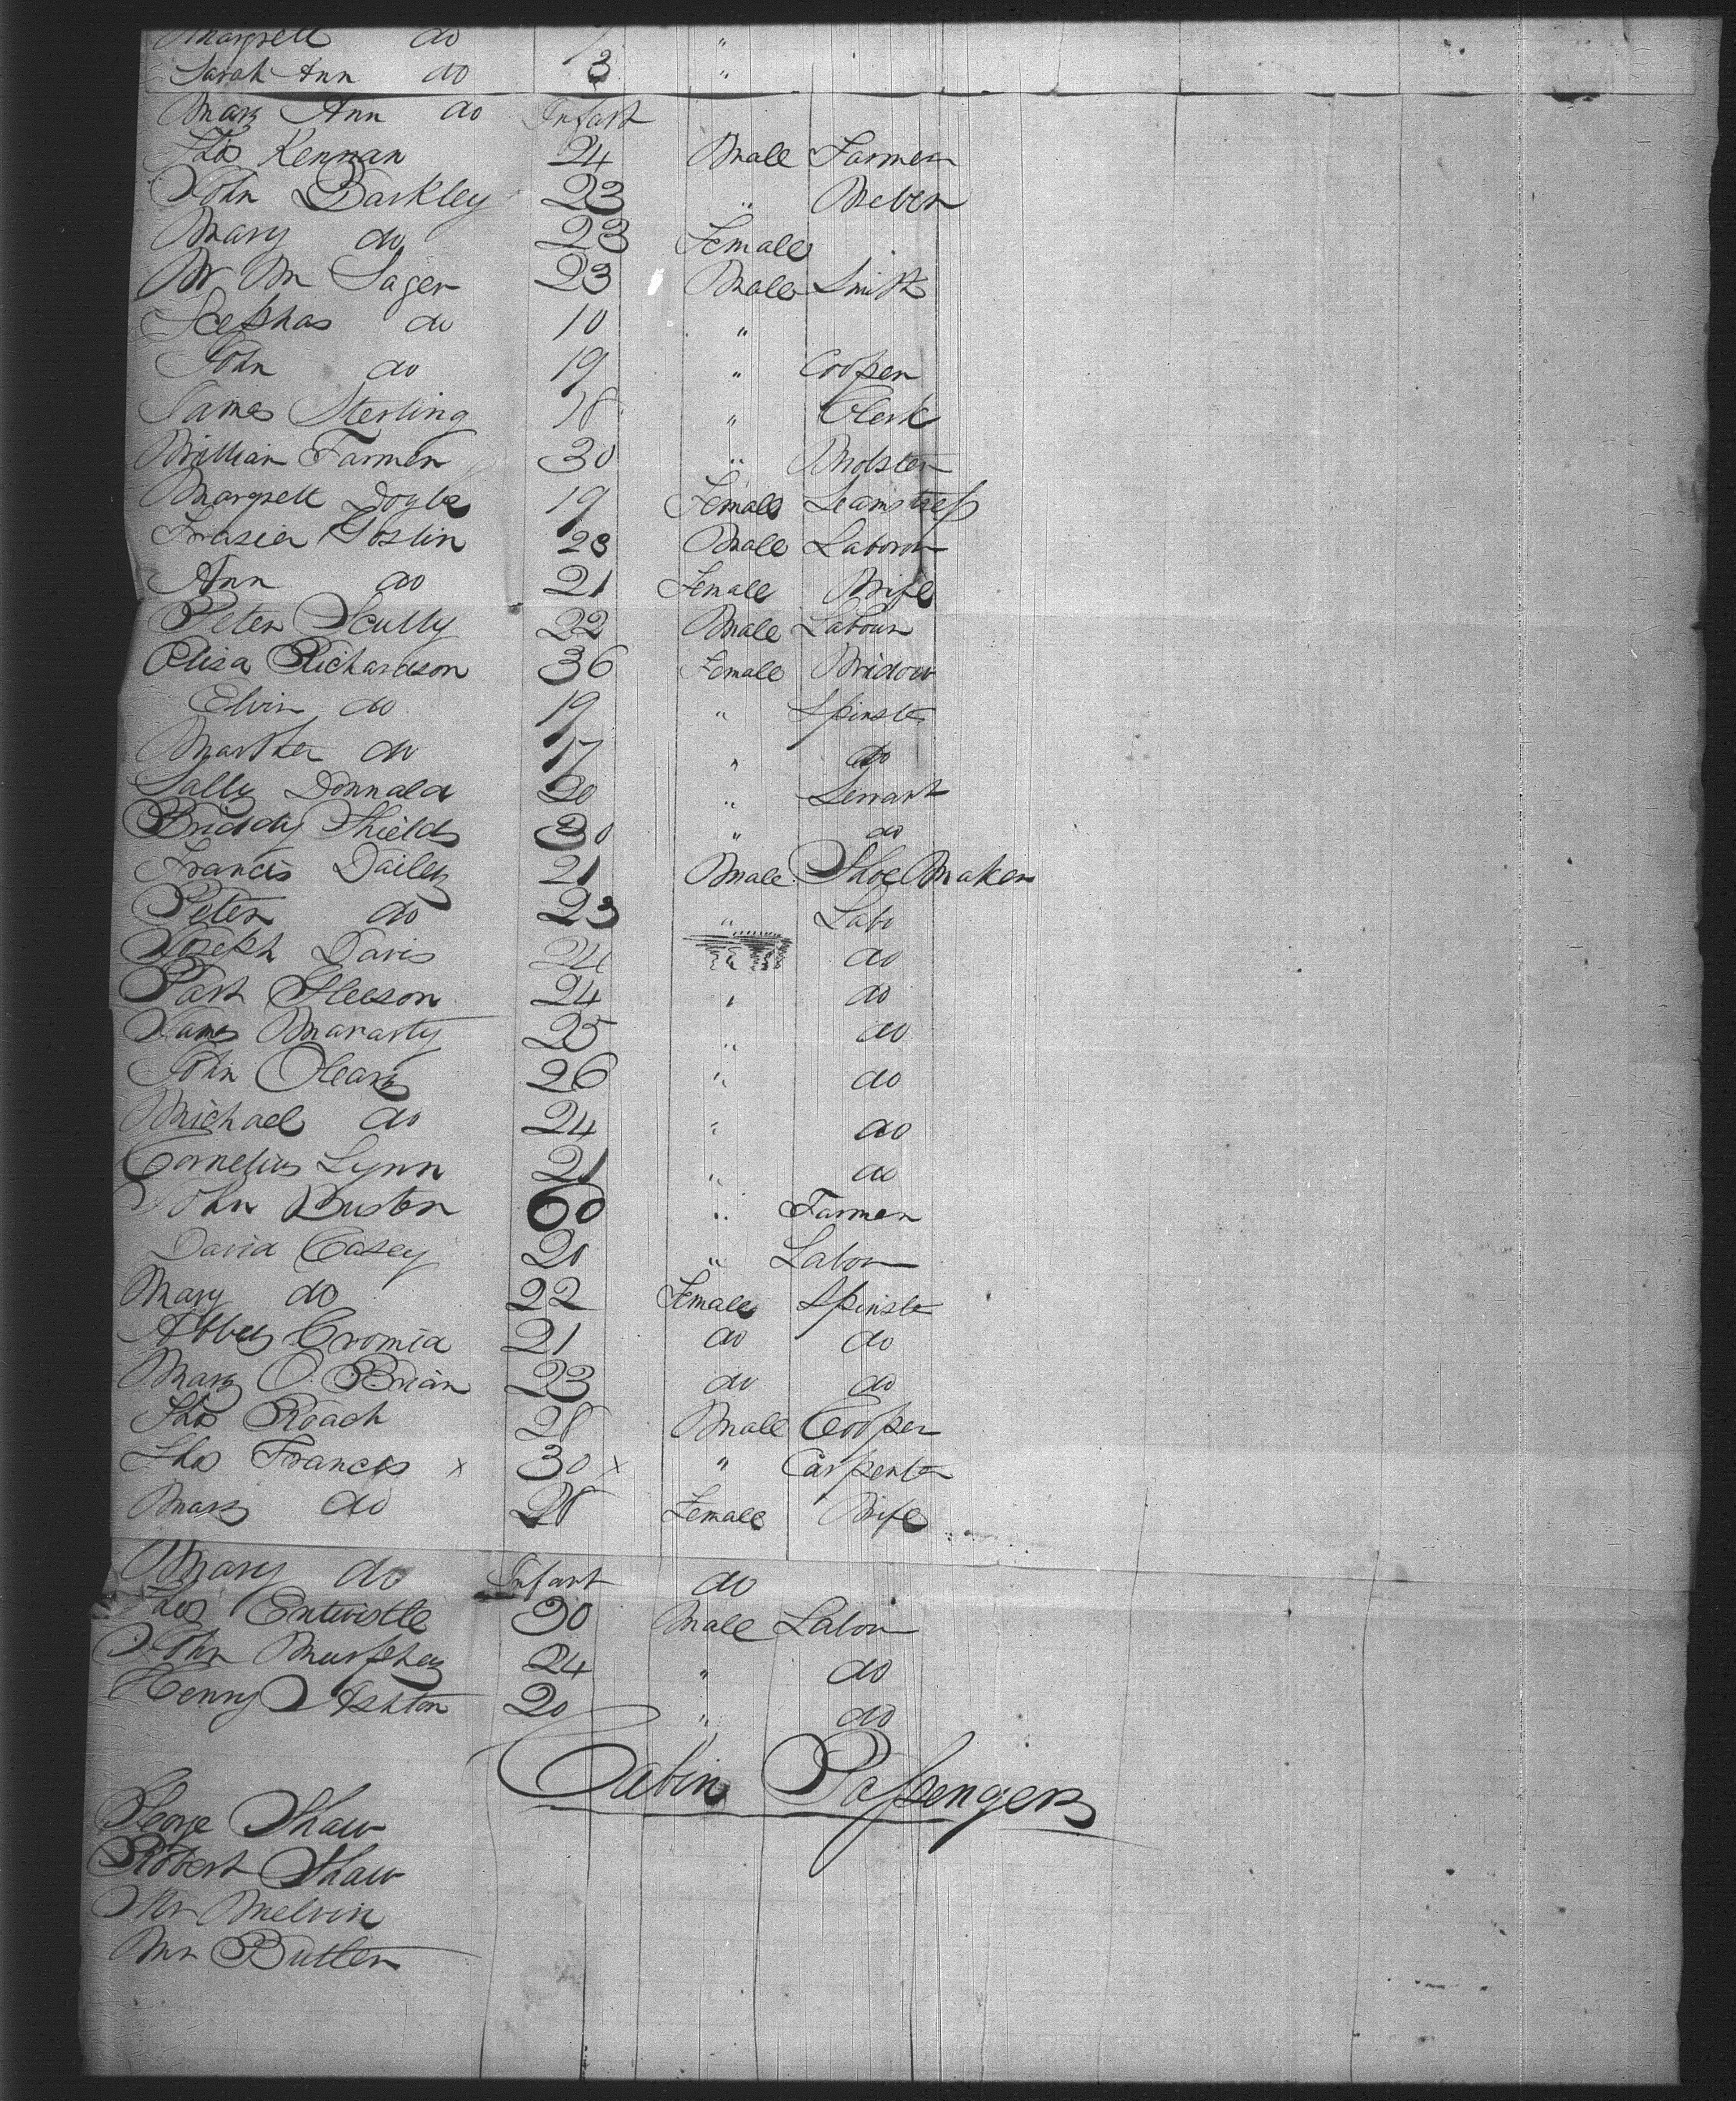 Margrett do 7 "
Sarah Ann do 3 "
Mary Ann do Infant
Thos Kennan 24 Male Farmer
John Barkley 23 " Weber
Mary do 23 Female
Wm Sager 23 Male Smith
Scephas do 10 "
John do 19 " Cooper
James Sterling 18 " Clerk
William Farmer 30 "
Margrett Doyle 19 Female Seamstress
Frasier Goslin 28 Male Laborer
Ann do 21 Female Wife
Peter Scully 22 Male Labour
Elisa Richardson 36 Female Widow
Elvin do 19 " Spinstr
Marther do 17 " do
Sally Donnald 20 " Servant
Briddy Shields 30 " do
Francis Dailey 21 Male Shoe Maker
Peter do 23 " Labo
Joseph Davis 24 do
Patt Gleeson 24 " do
James 25 " do
John Oleary 26 " do
Michael do 24 " do
Cornelius Lynn 21 " do
John Buster 60 " Farmer
David Casey 20 " Labor
Mary do 22 Female Spinstr
Abbey Cromia 21 do do
Mary O.Brian 23 do do
Thos Roach 28 Male Cooper
Thos Francis x 30 x " Carpenter
Mary do 28 Female Wife
Mary do Infant do
Thos Entwistle 30 Male Labor
John Murphey 24 " do
Henry Ashton 20 " do
Cabin Passengers
George Shaw
Robert Shaw
Mr Melvin
Mr Butler